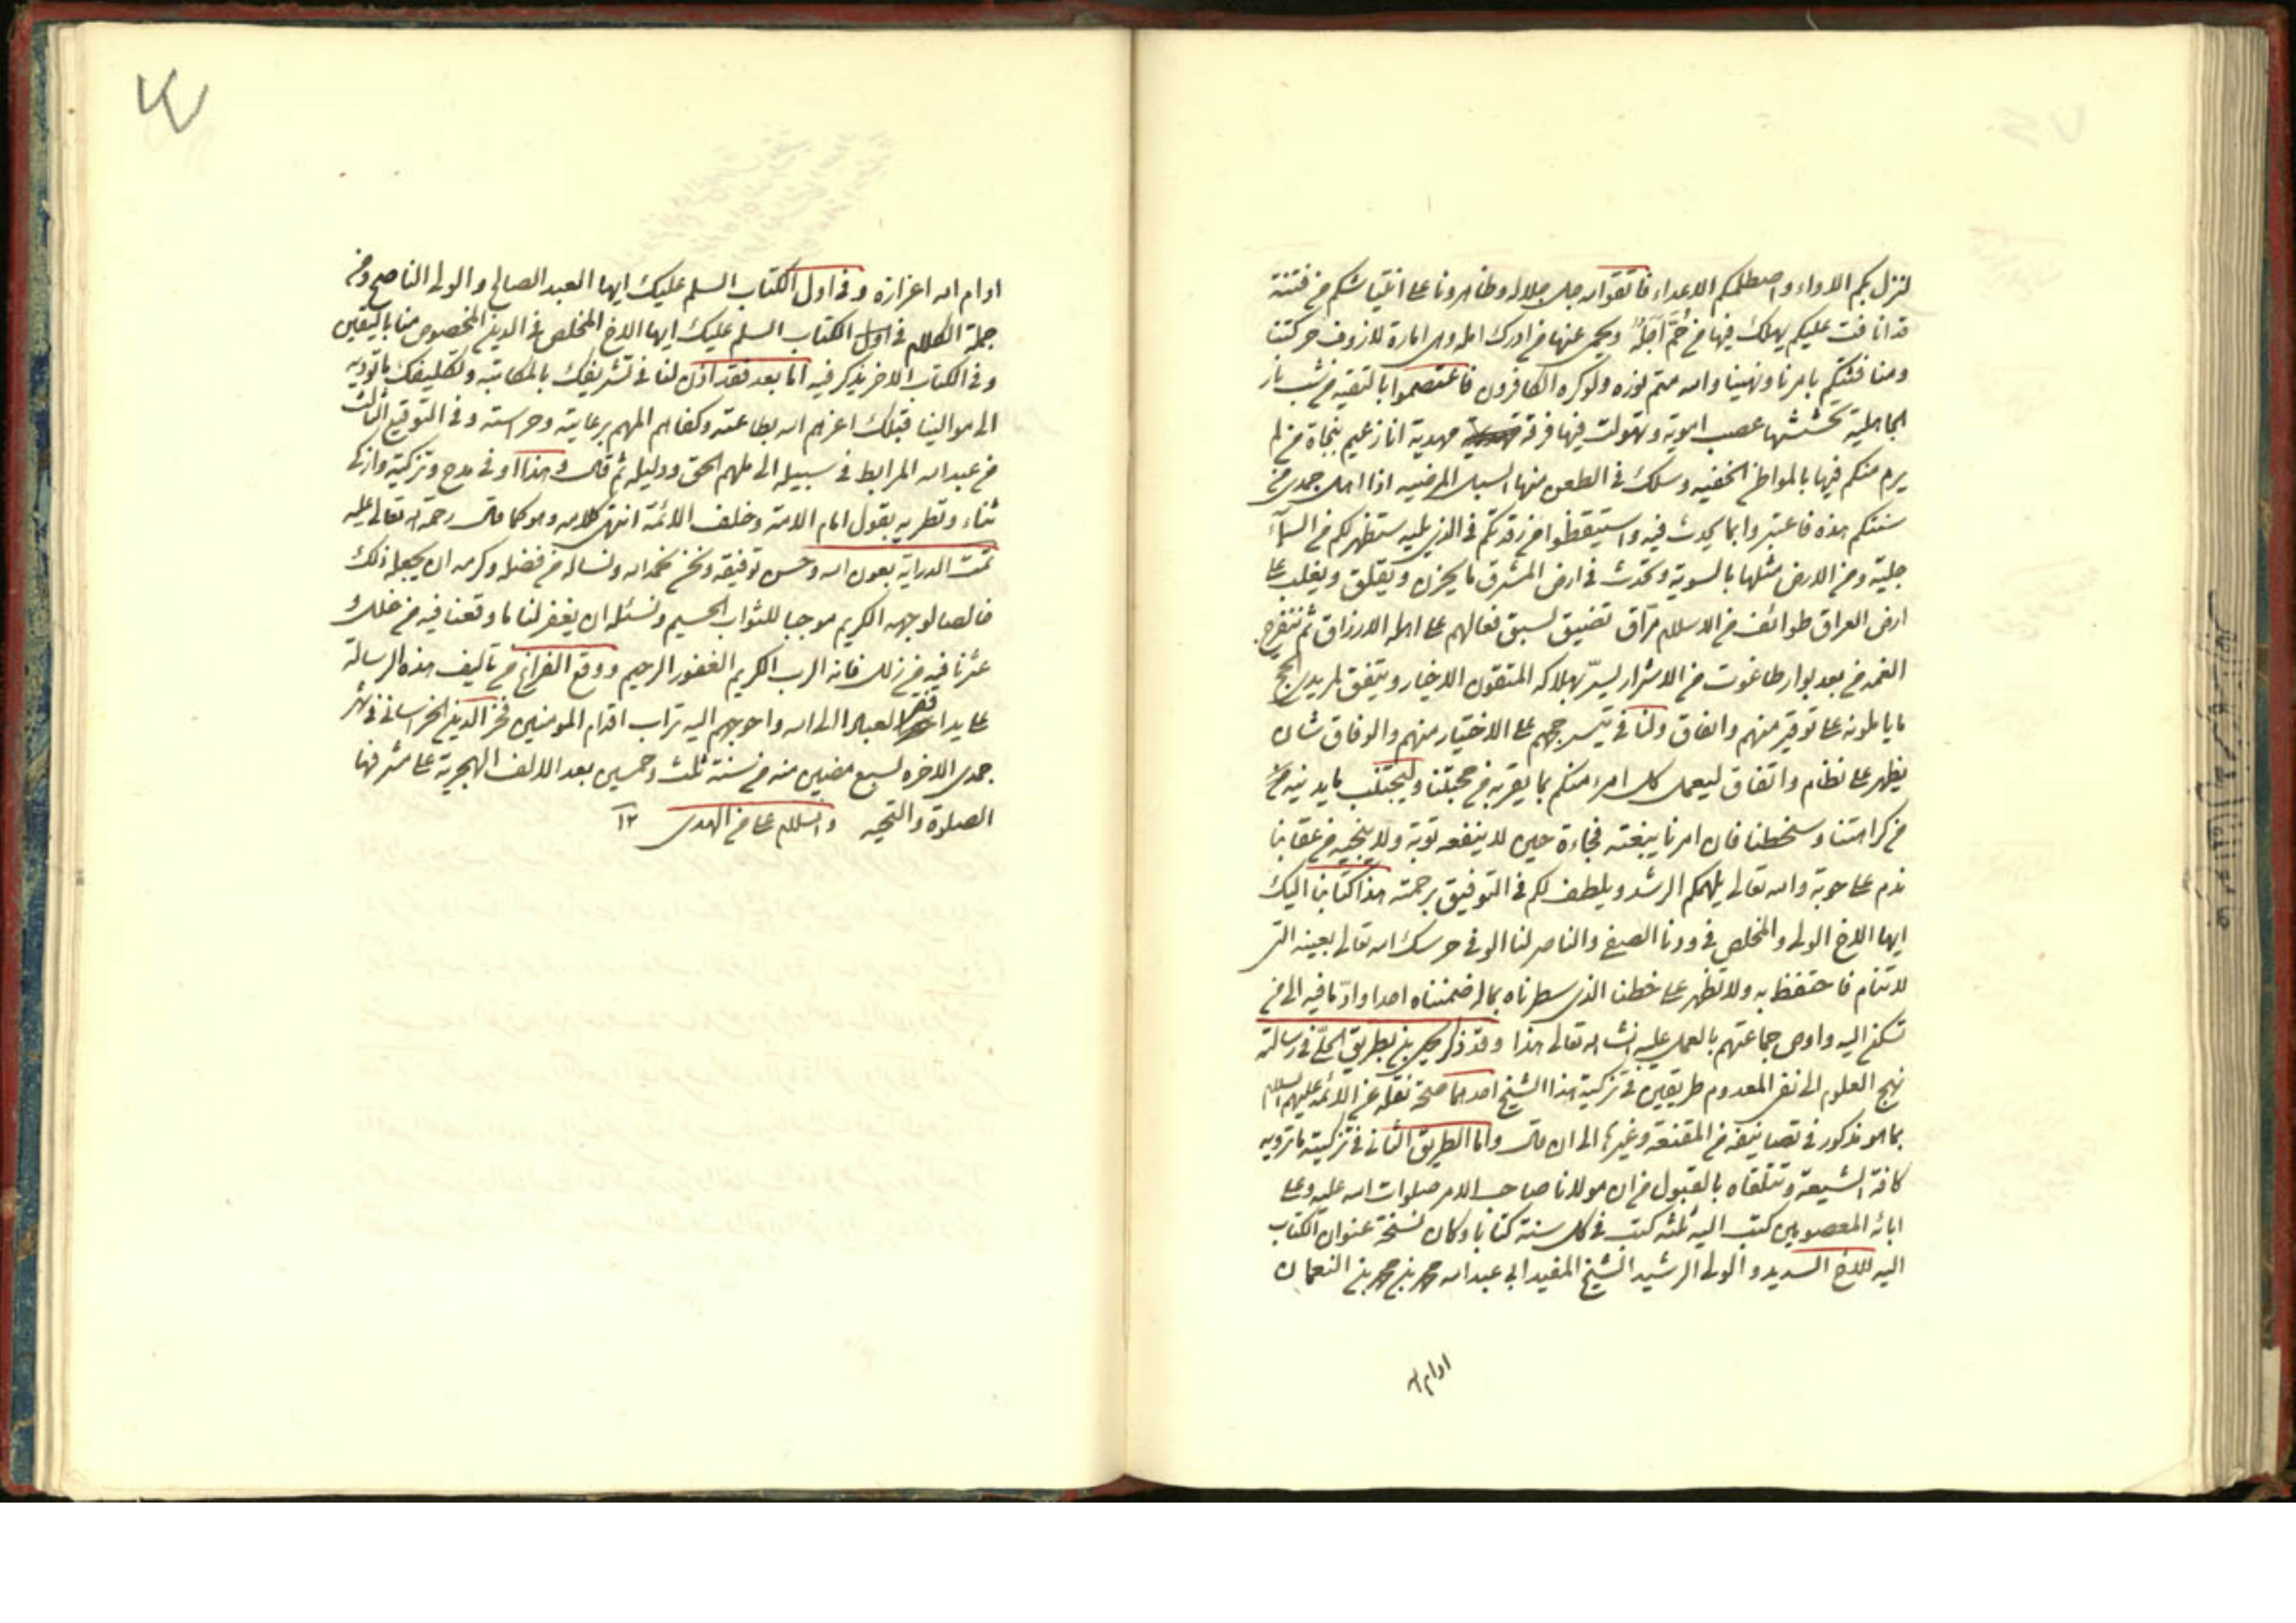 لنزل بكم اللاواء واصطلمكم الاعداء فاتقوا اله جل جلاله وظاهرونا على انتياشكم من فتنة
قد انافت عليكم يهلك فيها من حُمَّ اَجَلُه ويحمى عنها من ادرك امله وهى امارة لازوف حركتنا
ومنافثتكم بامرنا ونهينا واله متم نوره ولو كره الكافرون فاعتصموا بالتقيه من شب نار
الجاهلية تحششها عصب اموية وتهولت فيها فرقة مهدية انا زعيم بنجاة من لم
يرم منكم فيها بالمواطن الخفيه وسلك فى الطعن منها السبل المرضيه اذا اهل جمدى من
سنتكم هذه فاعتبروا بما يحدث فيه واستيقظوا من رقدتكم فى الذى يليه ستظهر لكم من السماء
جلية ومن الارض مثلها بالسوية ويحدث فى ارض المشرق ما يحزن ويقلق ويغلب على
ارض العراق طوائف من الاسلام مرّاق تضيق لسبق فعالهم على اهله الارزاق ثم تنفرج
الغمه من بعد بوار طاغوت من الاشرار ليسرّ بهلاكه المتقون الاخيار ويتفق لمريدى الحج
ما ياملونه على توقير منهم واتفاق ولنا فى تيسير حجهم على الاختيار منهم والوفاق شان
يظهر على نظام واتفاق ليعمل كل امرء منكم بما يقربه من محبتنا وليجتنب ما يدنيه
من كراهتنا وسخطنا فان امرنا يبغته فجاءة حين لا ينفعه توبة ولا ينجيه من عقابنا
ندم على حوبة واله تعالى يلهمكم الرشد ويلطف لكم فى التوفيق برحمته هذا كتابنا اليك
ايها الاخ الولى والمخلص فى ودنا الصفى والناصر لنا الوفى حرسك اله تعالى بعينه التى
لا تنام فاحتفظ به ولا تظهر على خطنا الذى سطرناه بماله ضمنناه احدا وادّ ما فيه الى من
تسكن اليه واوص جماعتهم بالعمل عليه انشا اله تعالى هذا وقد ذكر يحيى بن بطريق الحلّى فى رسالة
نهج العلوم الى نفى المعدوم طريقين فى تزكية هذا الشيخ احدهما صحة نقله عن الائمة عليهم السلام
بما هو مذكور فى تصانيفه من المقنعة وغيرها الى ان قال واما الطريق الثانى فى تزكيته ما ترويه
كافة الشيعة وتتلقاه بالقبول من ان مولانا صاحب الامر صلوات اله عليه وعلى
ابائه المعصومين كتب اليه ثلثه كتب فى كل سنة كتابا وكان نسخة عنوان الكتاب
اليه للاخ السديد والولى الرشيد الشيخ المفيد ابى عبد اله محمد بن محمد بن النعمان
ادام اله
ادام اله اعزازه وفى اول الكتاب السلم عليك ايها العبد الصالح والولى الناصح ومن
جملة الكلام فى اول الكتاب السلم عليك ايها الاخ المخلص فى الدين المخصوص منا باليقين
وفى الكتاب الاخر يذكر فيه اما بعد فقد اذن لنا فى تشريفك بالمكاتبه وتكليفك ما تؤديه
الى موالينا قبلك اعزهم اله بطاعته وكفاهم المهم برعايته وحراسته وفى التوقيع الثالث
من عبد اله المرابط فى سبيله الى ملهم الحق ودليله ثم قال وهذا اوفى مدح وتزكية وازكى
ثناء وتطريه بقول امام الامة وخلف الائمة انتهى كلامه وهو كما قال رحمة اله تعالى عليه
تمت الدراية بعون اله وحسن توفيقه ونحن نحمد اله ونساله من فضله وكرمه ان يجعل ذلك
خالصا لوجهه الكريم موجبا للثواب الجسيم ونسئله ان يغفر لنا ما وقعنا فيه من خلل و
عثرنا فيه من زلل فانه الرب الكريم الغفور الرحيم ووقع الفراغ من تاليف هذه الرسالة
على يد افقر العباد الى اله واحوجهم اليه تراب اقدام المومنين فخر الدين الخراسانى فى شهر
جمدى الاخره لسبع مضين منه من سنة ثلث وخمسين بعد الالف الهجرية على مشرفها
الصلوة والتحيه والسلام على من الهدى ١٢